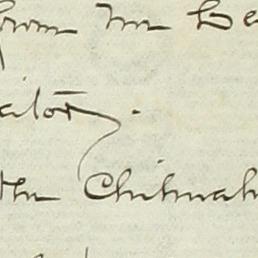 from Mr Be
ailoty.
the Chihuah